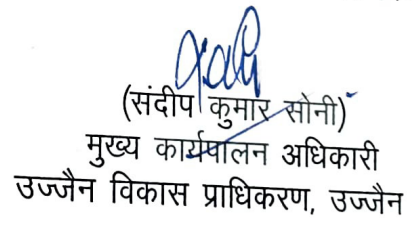 (संदीप कुमार सोनी)
मुख्य कार्यपालन अधिकारी
उज्जैन विकास प्राधिकरण, उज्जैन